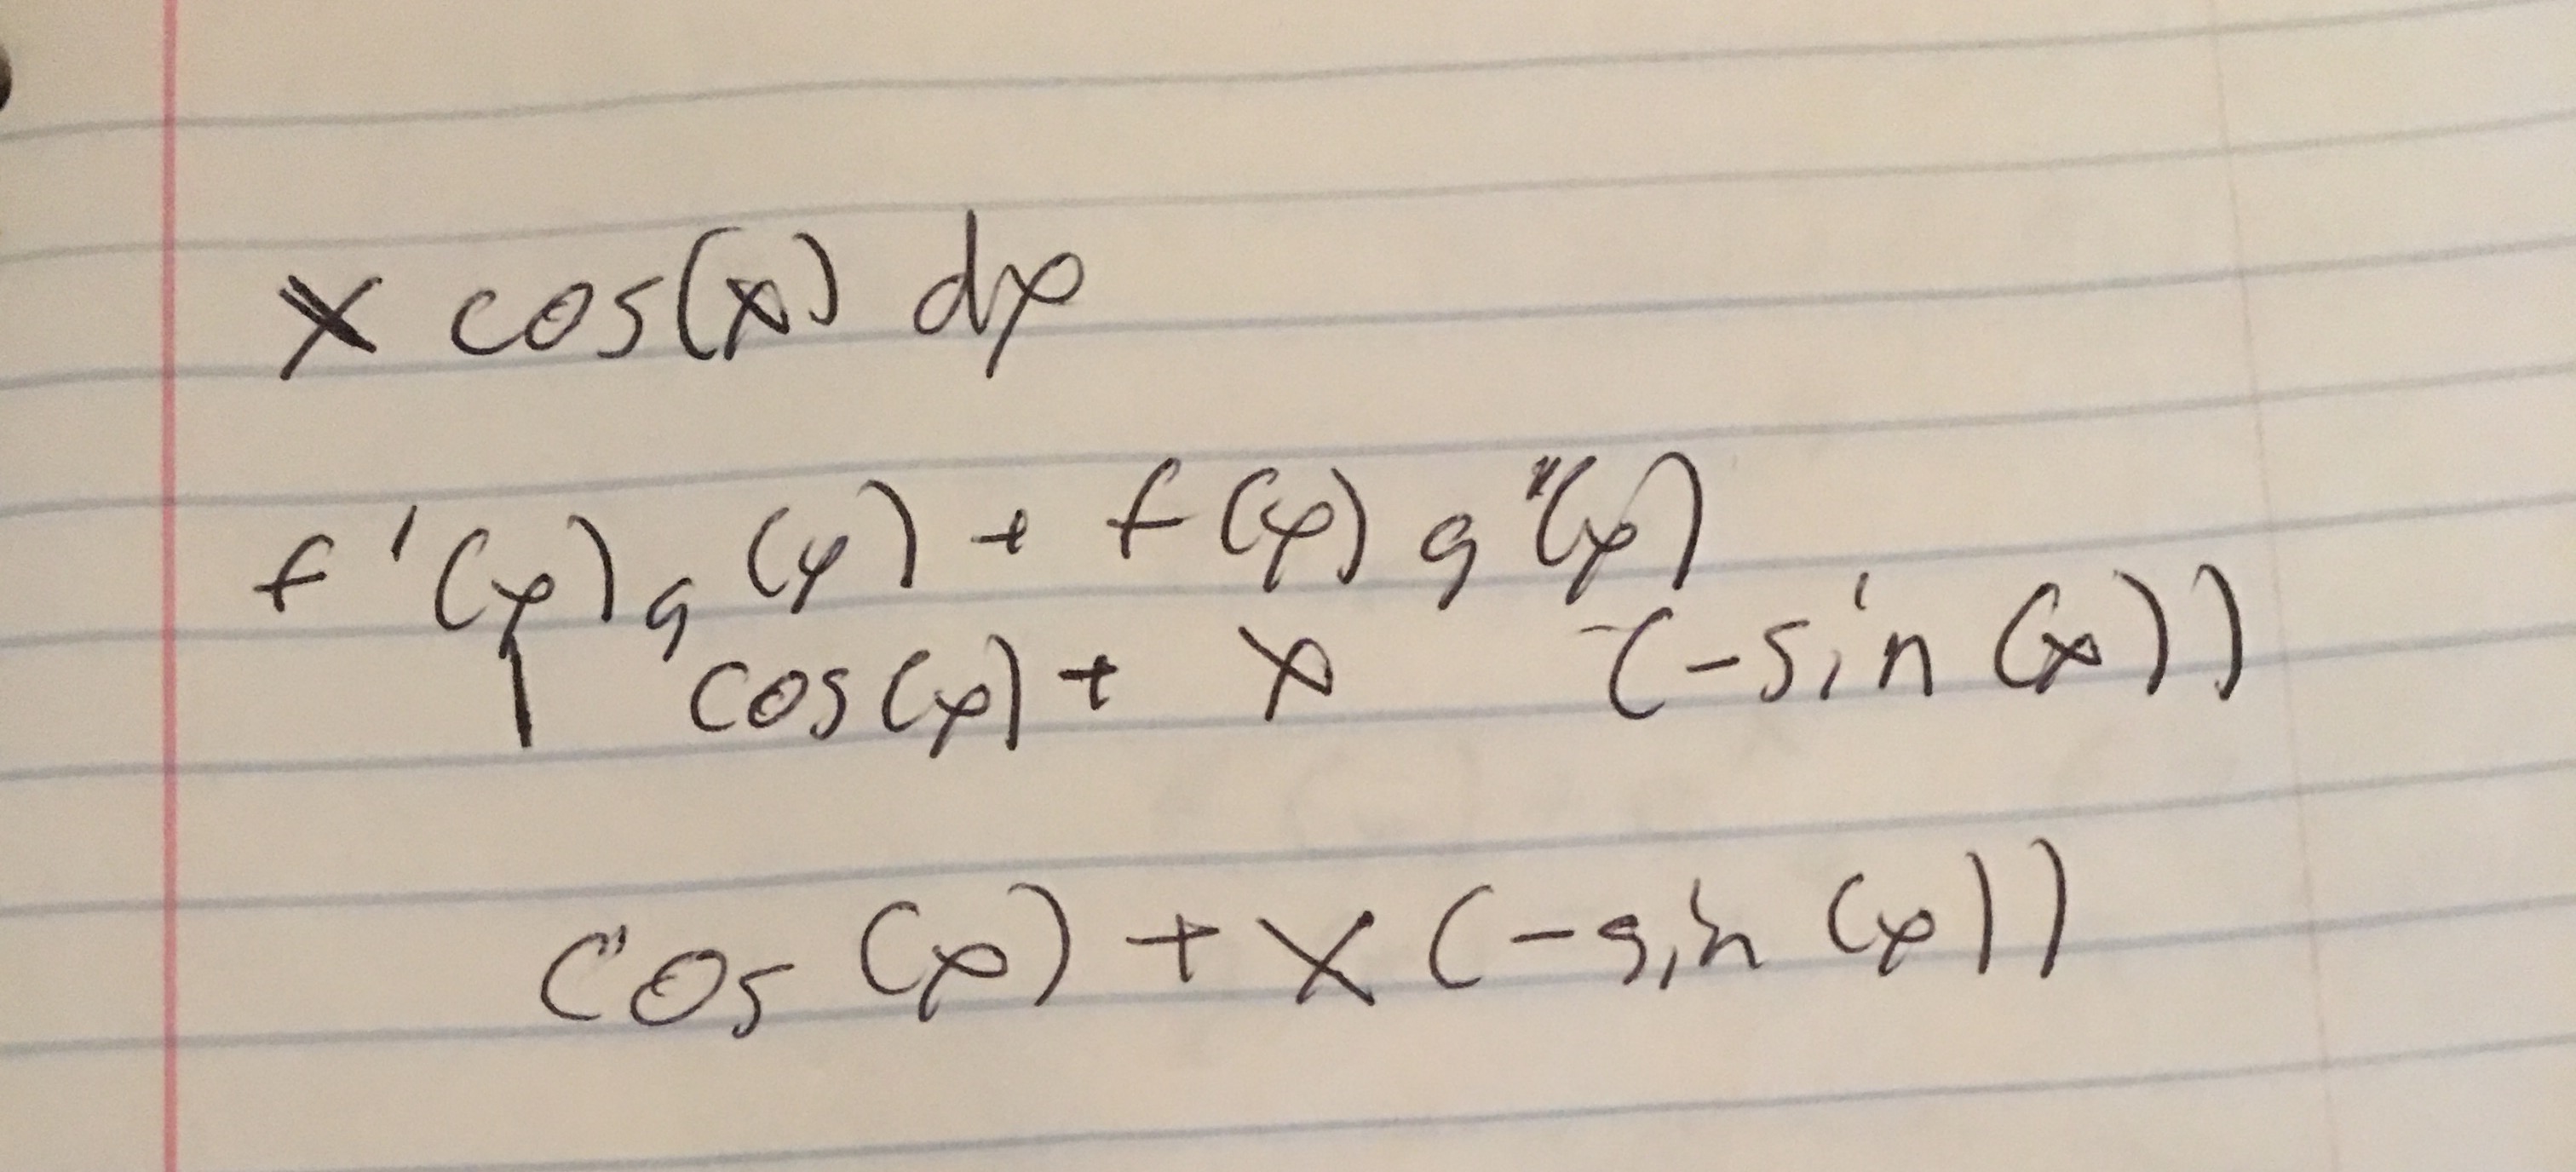 x cos(x) dx
f'(x)g(x) + f(x)g"(x)
1 cos(x) + x (-sin(x))
cos(x) + x(-sin(x))